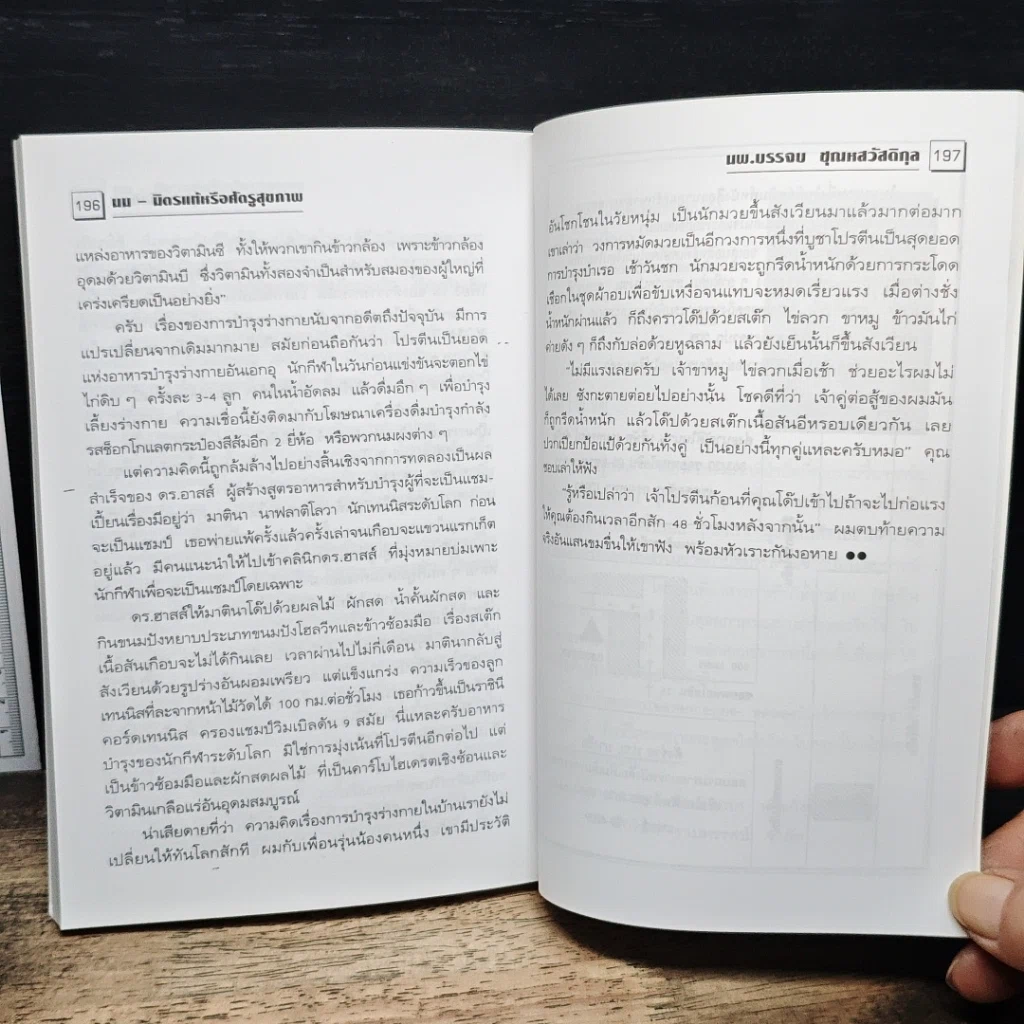 196 นม – มิตรแท้หรือศัตรูสุขภาพ
แหล่งอาหารของวิตามินซี ทั้งให้พวกเขากินข้าวกล้อง เพราะข้าวกล้อง
อุดมด้วยวิตามินบี ซึ่งวิตามินทั้งสองจำเป็นสำหรับสมองของผู้ใหญ่ที่
เคร่งเครียดเป็นอย่างยิ่ง"
ครับ เรื่องของการบำรุงร่างกายนับจากอดีตถึงปัจจุบัน มีการ
แปรเปลี่ยนจากเดิมมากมาย สมัยก่อนถือกันว่า โปรตีนเป็นยอด
แห่งอาหารบำรุงร่างกายอันเอกอุ นักกีฬาในวันก่อนแข่งขันจะตอกไข่
ไก่ดิบ ๆ ครั้งละ 3-4 ลูก คนในน้ำอัดลม แล้วดื่มอึก ๆ เพื่อบำรุง
เลี้ยงร่างกาย ความเชื่อนี้ยังติดมากับโฆษณาเครื่องดื่มบำรุงกำลัง
รสช็อกโกแลตกระป๋องสีส้มอีก 2 ยี่ห้อ หรือพวกนมผงต่าง ๆ
แต่ความคิดนี้ถูกล้มล้างไปอย่างสิ้นเชิงจากการทดลองเป็นผล
สำเร็จของ ดร.ฮาสส์ ผู้สร้างสูตรอาหารสำหรับบำรุงผู้ที่จะเป็นแชม-
เปี้ยนเรื่องมีอยู่ว่า มาตินา นาฟลาติโลวา นักเทนนิสระดับโลก ก่อน
จะเป็นแชมป์ เธอพ่ายแพ้ครั้งแล้วครั้งเล่าจนเกือบจะแขวนแรกเก็ต
อยู่แล้ว มีคนแนะนำให้ไปเข้าคลินิกดร.ฮาสส์ ที่มุ่งหมายบ่มเพาะ
นักกีฬาเพื่อจะเป็นแชมป์โดยเฉพาะ
ดร.ฮาสส์ให้มาตินาโด๊ปด้วยผลไม้ ผักสด น้ำคั้นผักสด และ
กินขนมปังหยาบประเภทขนมปังโฮลวีทและข้าวซ้อมมือ เรื่องสเต๊ก
เนื้อสันเกือบจะไม่ได้กินเลย เวลาผ่านไปไม่กี่เดือน มาตินากลับสู่
สังเวียนด้วยรูปร่างอันผอมเพรียว แต่แข็งแกร่ง ความเร็วของลูก
เทนนิสที่ละจากหน้าไม้วัดได้ 100 กม.ต่อชั่วโมง เธอก้าวขึ้นเป็นราชินี
คอร์ดเทนนิส ครองแชมป์วิมเบิลดัน 9 สมัย นี่แหละครับอาหาร
บำรุงของนักกีฬาระดับโลก มิใช่การมุ่งเน้นที่โปรตีนอีกต่อไป แต่
เป็นข้าวซ้อมมือและผักสดผลไม้ ที่เป็นคาร์โบไฮเดรตเชิงซ้อนและ
วิตามินเกลือแร่อันอุดมสมบูรณ์
น่าเสียดายที่ว่า ความคิดเรื่องการบำรุงร่างกายในบ้านเรายังไม่
เปลี่ยนให้ทันโลกสักที ผมกับเพื่อนรุ่นน้องคนหนึ่ง เขามีประวัติ
นพ.บรรจบ ชุณหสวัสดิกุล 197
อันโชกโชนในวัยหนุ่ม เป็นนักมวยขึ้นสังเวียนมาแล้วมากต่อมาก
เขาเล่าว่า วงการหมัดมวยเป็นอีกวงการหนึ่งที่บูชาโปรตีนเป็นสุดยอด
การบำรุงบำเรอ เช้าวันชก นักมวยจะถูกรีดน้ำหนักด้วยการกระโดด
เชือกในชุดผ้าอบเพื่อขับเหงื่อจนแทบจะหมดเรี่ยวแรง เมื่อต่างชั่ง
น้ำหนักผ่านแล้ว ก็ถึงคราวโด๊ปด้วยสเต๊ก ไข่ลวก ขาหมู ข้าวมันไก่
ค่ายดัง ๆ ก็ถึงกับล่อด้วยหูฉลาม แล้วยังเย็นนั้นก็ขึ้นสังเวียน
"ไม่มีแรงเลยครับ เจ้าขาหมู ไข่ลวกเมื่อเช้า ช่วยอะไรผมไม่
ได้เลย ซังกะตายต่อยไปอย่างนั้น โชคดีที่ว่า เจ้าคู่ต่อสู้ของผมมัน
ก็ถูกรีดน้ำหนัก แล้วโด๊ปด้วยสเต๊กเนื้อสันอีหรอบเดียวกัน เลย
ปวกเปียกป้อแป้ด้วยกันทั้งคู่ เป็นอย่างนี้ทุกคู่แหละครับหมอ" คุณ
ชอบเล่าให้ฟัง
"รู้หรือเปล่าว่า เจ้าโปรตีนก้อนที่คุณโด๊ปเข้าไปถ้าจะไปก่อแรง
ให้คุณต้องกินเวลาอีกสัก 48 ชั่วโมงหลังจากนั้น" ผมตบท้ายความ
จริงอันแสนขมขื่นให้เขาฟัง พร้อมหัวเราะกันงอหาย ●●